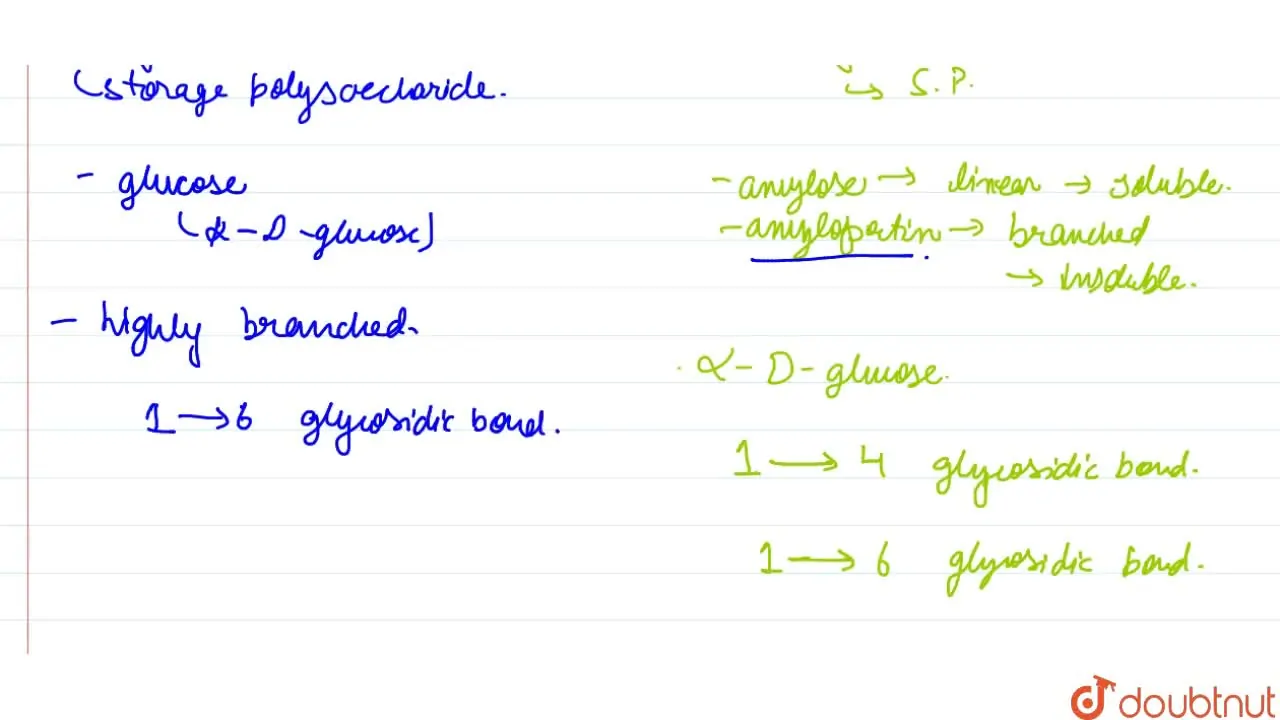 ↳ storage polysaccharide.
- glucose
(α-D-glucose)
- highly branched.
1 → 6 glycosidic bond.
↳ S.P.
- amylose → linear → soluble.
- amylopectin → branched
→ insoluble.
α-D-glucose.
1 → 4 glycosidic bond.
1 → 6 glycosidic bond.
doubtnut